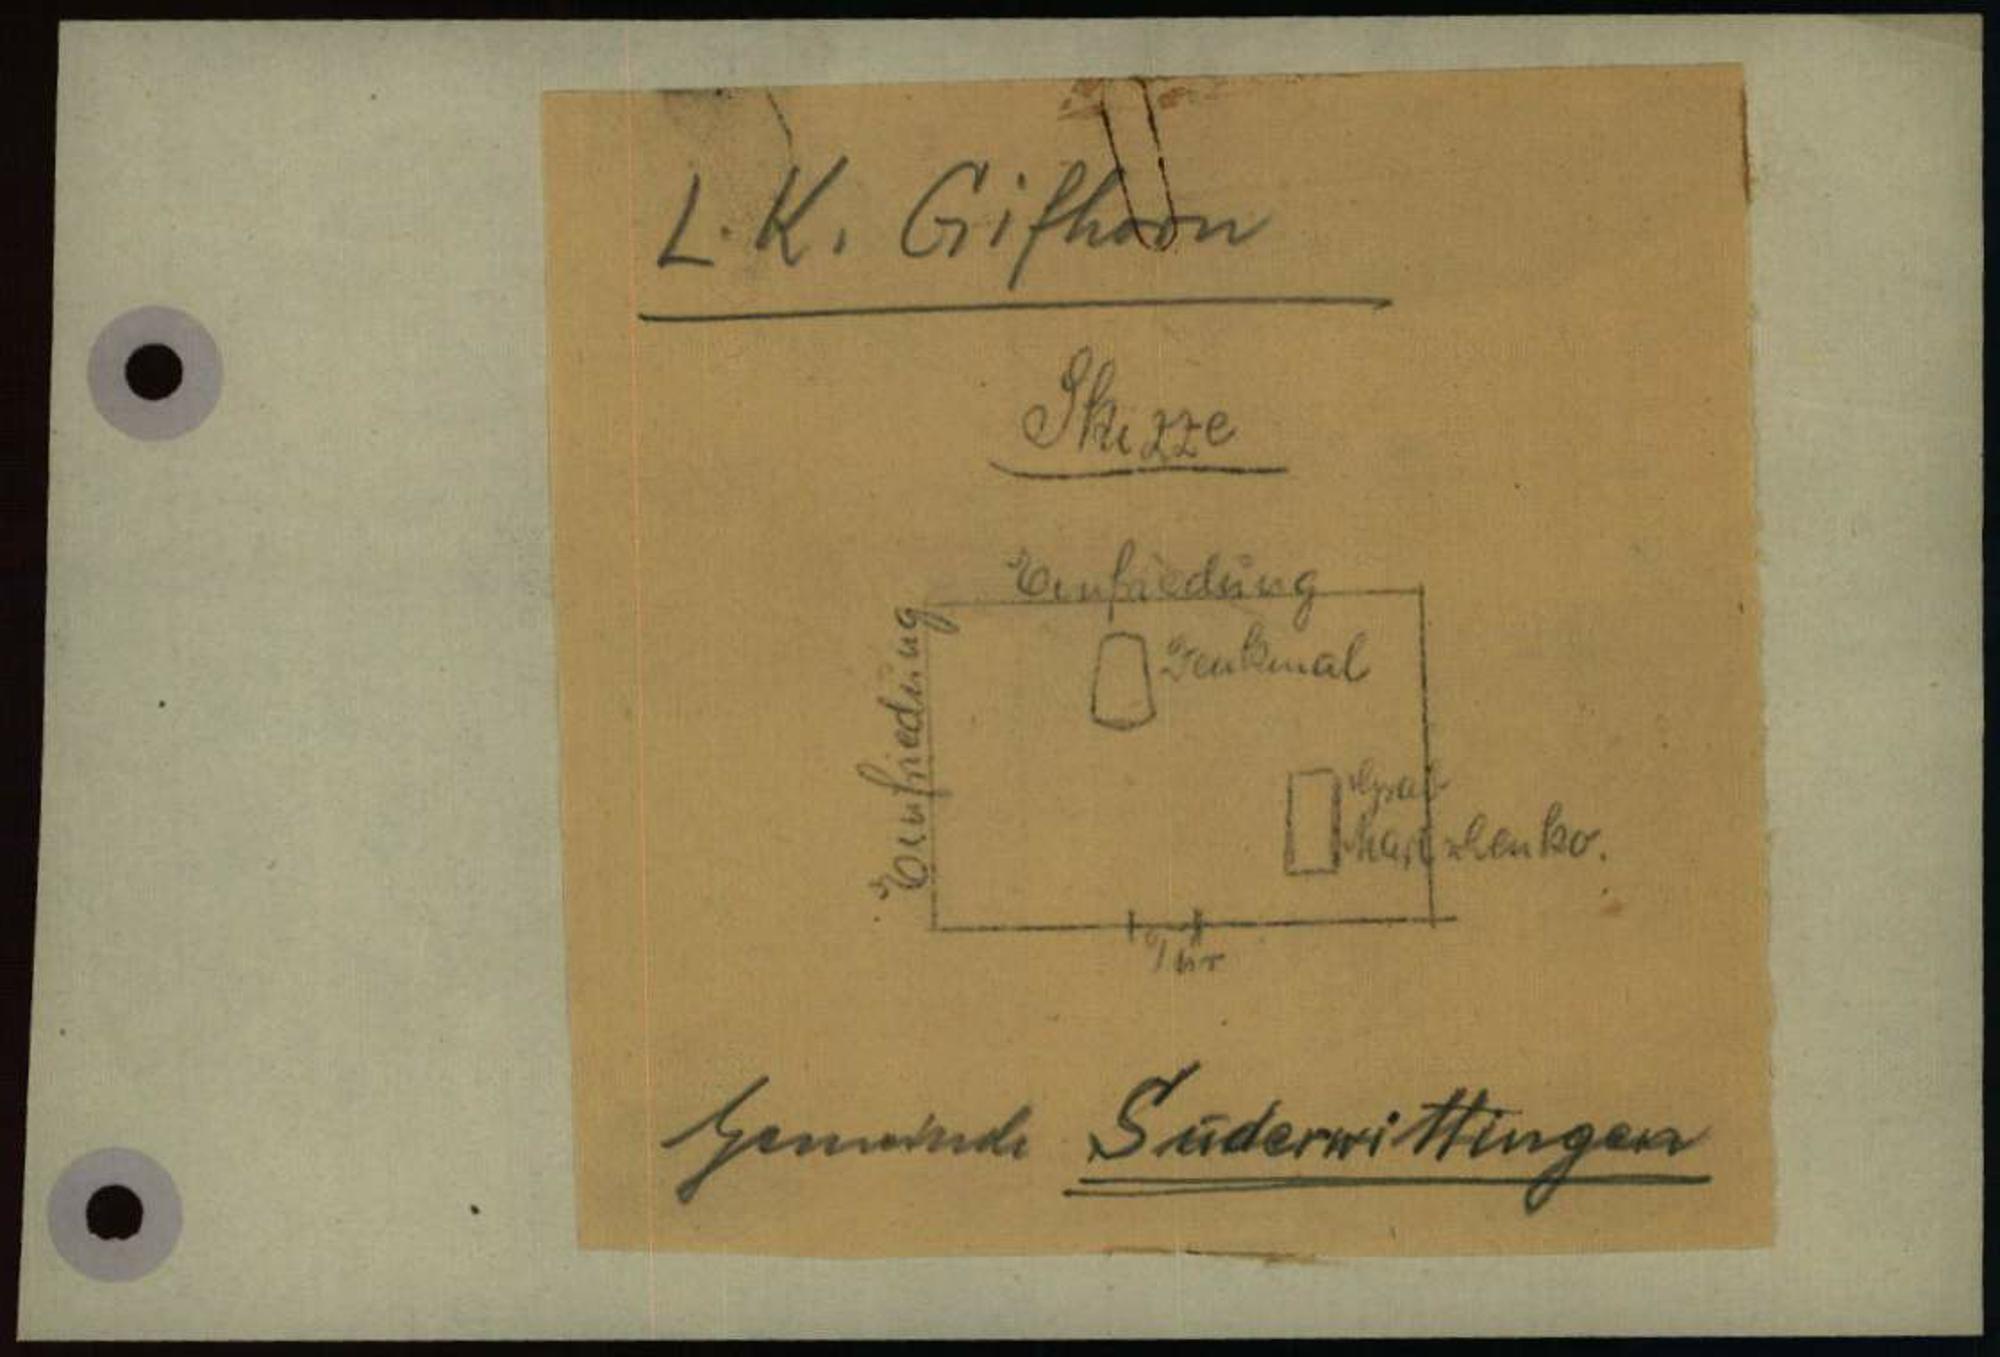 L. K. Gifhorn
Skizze
Einfriedung
Einfriedung
Denkmal
Grab
Tür
Gemeinde Suderwittingen